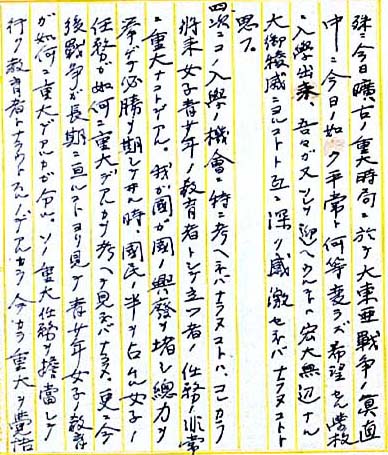 殊ニ今日曠古ノ重大時局ニ於テ大東亜戦争ノ真直
中ニ今日ノ如ク平常ト何等変ラズ希望セル学校
ニ入学出来、吾々ガ又シク迎ヘウルハ宏大無辺ナル
大御稜威ニヨルコトト互ニ深ク感激セネバナラヌコトト
思フ。
四次ニコノ入学ノ機会ニ特ニ考ヘネバナラヌコトハ、コレカラ
将来女子青少年ノ教育者トシテ立ツ者ノ任務ノ非常
ニ重大ナコトデアル。我が國ガ國ノ興廃ヲ堵シ總力ヲ
挙ゲテ必勝ヲ期シテヰル時、國民ノ半ヲ占ムル女子ノ
任務ガ如何ニ重大デアルカヲ考ヘテ見ネバナラヌ。更ニ今
後戦争ガ長期ニ亘ルコトヨリ見テ青少年女子ノ教育
ガ如何ニ重大デアルカガ分ル。ソノ重大任務ヲ擔当シテ
行ク教育者トナラウトスルノデアルカラ今カラ重大ナ覚悟